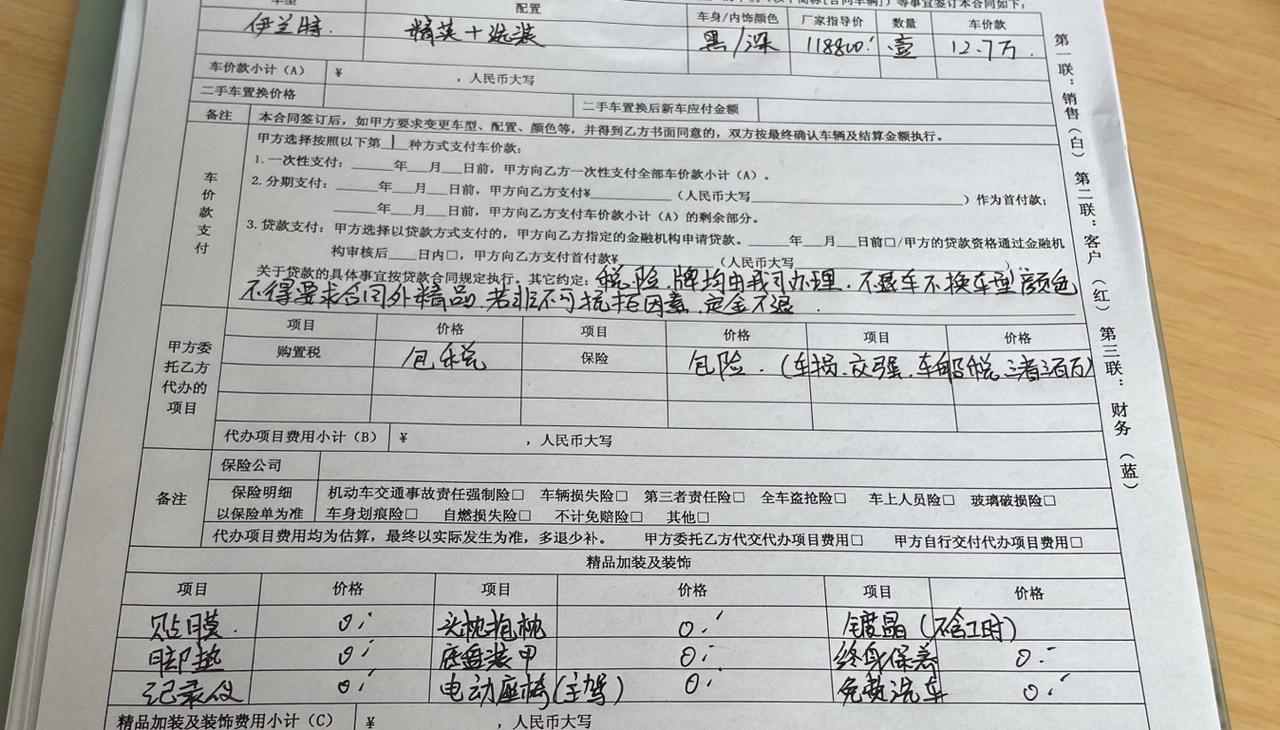 车型 配置 车身/内饰颜色 厂家指导价 数量 车价款
伊兰特. 精装+选装 黑/深 118800.- 壹 12.7万.
车价款小计（A） ￥ ，人民币大写
二手车置换价格 二手车置换后新车应付金额
备注 本合同签订后，如甲方要求变更车型、配置、颜色等，并得到乙方书面同意的，双方按最终确认车辆及结算金额执行。
车价款支付
甲方选择按照以下第 1 种方式支付车价款：
1. 一次性支付：______年___月___日前，甲方向乙方一次性支付全部车价款小计（A）。
2. 分期支付：______年___月___日前，甲方向乙方支付￥__________（人民币大写__________________________）作为首付款；
______年___月___日前，甲方向乙方支付车价款小计（A）的剩余部分。
3. 贷款支付：甲方选择以贷款方式支付的，甲方向乙方指定的金融机构申请贷款。______年___月___日前□/甲方的贷款资格通过金融机
构审核后____日内□，甲方向乙方支付首付款￥__________（人民币大写__________________）
关于贷款的具体事宜按贷款合同规定执行。其它约定：税.险.牌均由我司办理.不退车不换车型颜色
不得要求合同外精品.若非不可抗拒因素.定金不退.
甲方委托乙方代办的项目
项目 价格 项目 价格 项目 价格
购置税 包税 保险 包险.（车损.交强.车船税.三者三百万）
代办项目费用小计（B） ￥ ，人民币大写
备注
保险公司
保险明细 机动车交通事故责任强制险□ 车辆损失险□ 第三者责任险□ 全车盗抢险□ 车上人员险□ 玻璃破损险□
以保险单为准 车身划痕险□ 自燃损失险□ 不计免赔险□ 其他□
代办项目费用均为估算，最终以实际发生为准，多退少补。 甲方委托乙方代交代办项目费用□ 甲方自行交付代办项目费用□
精品加装及装饰
项目 价格 项目 价格 项目 价格
贴膜. 0.- 头枕抱枕 0.- 镀晶（不含工时）
脚垫 0.- 底盘装甲 0.- 终身保养 0.-
记录仪 0.- 电动座椅（主驾） 0.- 免费洗车 0.-
精品加装及装饰费用小计（C） ￥ ，人民币大写
第一联：销售（白） 第二联：客户（红） 第三联：财务（蓝）